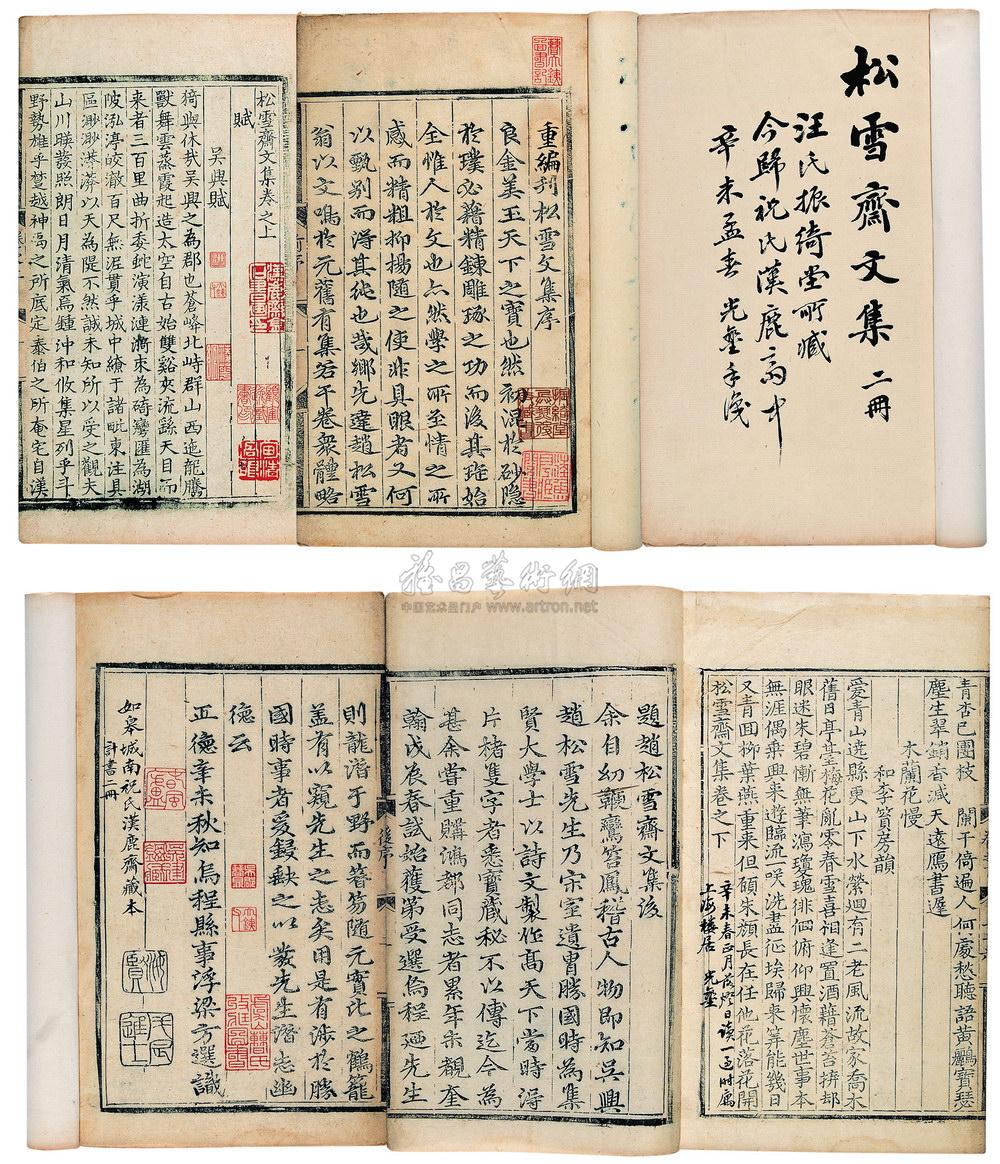 松雪齋文集 二冊
汪氏振綺堂所藏
今歸祝氏漢鹿齋中
辛未孟春 光堊手識
重編刋松雪文集序
良金美玉天下之寶也然初混於砂隐
於璞必藉精鍊雕琢之功而後其璀始
全惟人於文也亦然學之所至情之所
感而精粗抑揚隨之使非具眼者又何
以甄别而淂其純也哉鄉先達趙松雪
翁以文鳴於元舊有集若干卷衆體略
松雪齋文集卷之上
賦
吴興賦
猗與休哉吴興之為郡也蒼峰北峙群山西迤龍騰
獸舞雲蒸霞起造太空自古始雙谿夾流繇天目而
来者三百里曲折委蛇演漾漣漪束為碕彎匯為湖
陂泓渟皎澈百尺無泥貫乎城中繚于諸毗東注具
區渺渺漭漭以天為隄不然誠未知所以受之觀夫
山川暎發照朗日月清氣焉鍾沖和攸集星列乎斗
野勢雄乎楚越神禹之所底定泰伯之所奄宅自漢
雅昌藝術網
中国艺术品门户 www.artron.net
青杏已團枝 闌干倚遍人何處愁聽語黃鸝寶瑟
塵生翠銷香減天遠鴈書遲
木蘭花慢
和李筼房韻
愛青山遶縣更山下水縈迴有二老風流故家喬木
舊日亭臺梅花亂零春雪喜相逢置酒藉蒼苔拚却
眼迷朱碧慚無筆瀉瓊瑰徘徊俯仰興懷塵世事本
無涯偶乗興来遊臨流一咲洗盡征埃歸来筭能幾日
又青囬柳葉燕重来但願朱顔長在任他花落花開
松雪齋文集卷之下
辛未春正月落燈日讀一過時寓
上海樓居 光堊
題趙松雪齋文集後
余自幼鞭鸞笞鳳稽古人物即知吴興
趙松雪先生乃宋室遺冑勝國時為集
賢大學士以詩文製作髙天下當時淂
片楮隻字者悉寶藏秘不以傳迄今為
甚余嘗重購鴻都同志者累年未覩奎
翰戊辰春試始獲第受選烏程廼先生
後序
則龍潜于野而蓍笏隨元實比之鶴籠
盖有以窺先生之志矣用是有涉於勝
國時事者爰鋟缺之以裝先生濳志幽
德云
正德辛未秋知烏程縣事浮梁方選識
如皋城南祝氏漢鹿齋藏本
計書二冊
戊辰進士